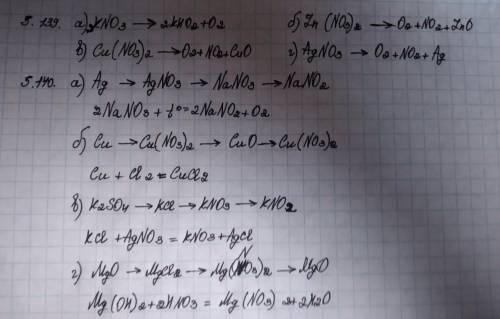 5.139. а) 2KNO3 → 2KNO2+O2 б) Zn(NO3)2 → O2+NO2+ZnO
в) Cu(NO3)2 → O2+NO2+CuO г) AgNO3 → O2+NO2+Ag
5.140. а) Ag → AgNO3 → NaNO3 → NaNO2
2NaNO3 + t° = 2NaNO2+O2
б) Cu → Cu(NO3)2 → CuO → Cu(NO3)2
Cu + Cl2 = CuCl2
в) K2SO4 → KCl → KNO3 → KNO2
KCl + AgNO3 = KNO3+AgCl
г) MgO → MgCl2 → Mg(NO3)2 → MgO
Mg(OH)2+2HNO3 = Mg(NO3)2+2H2O